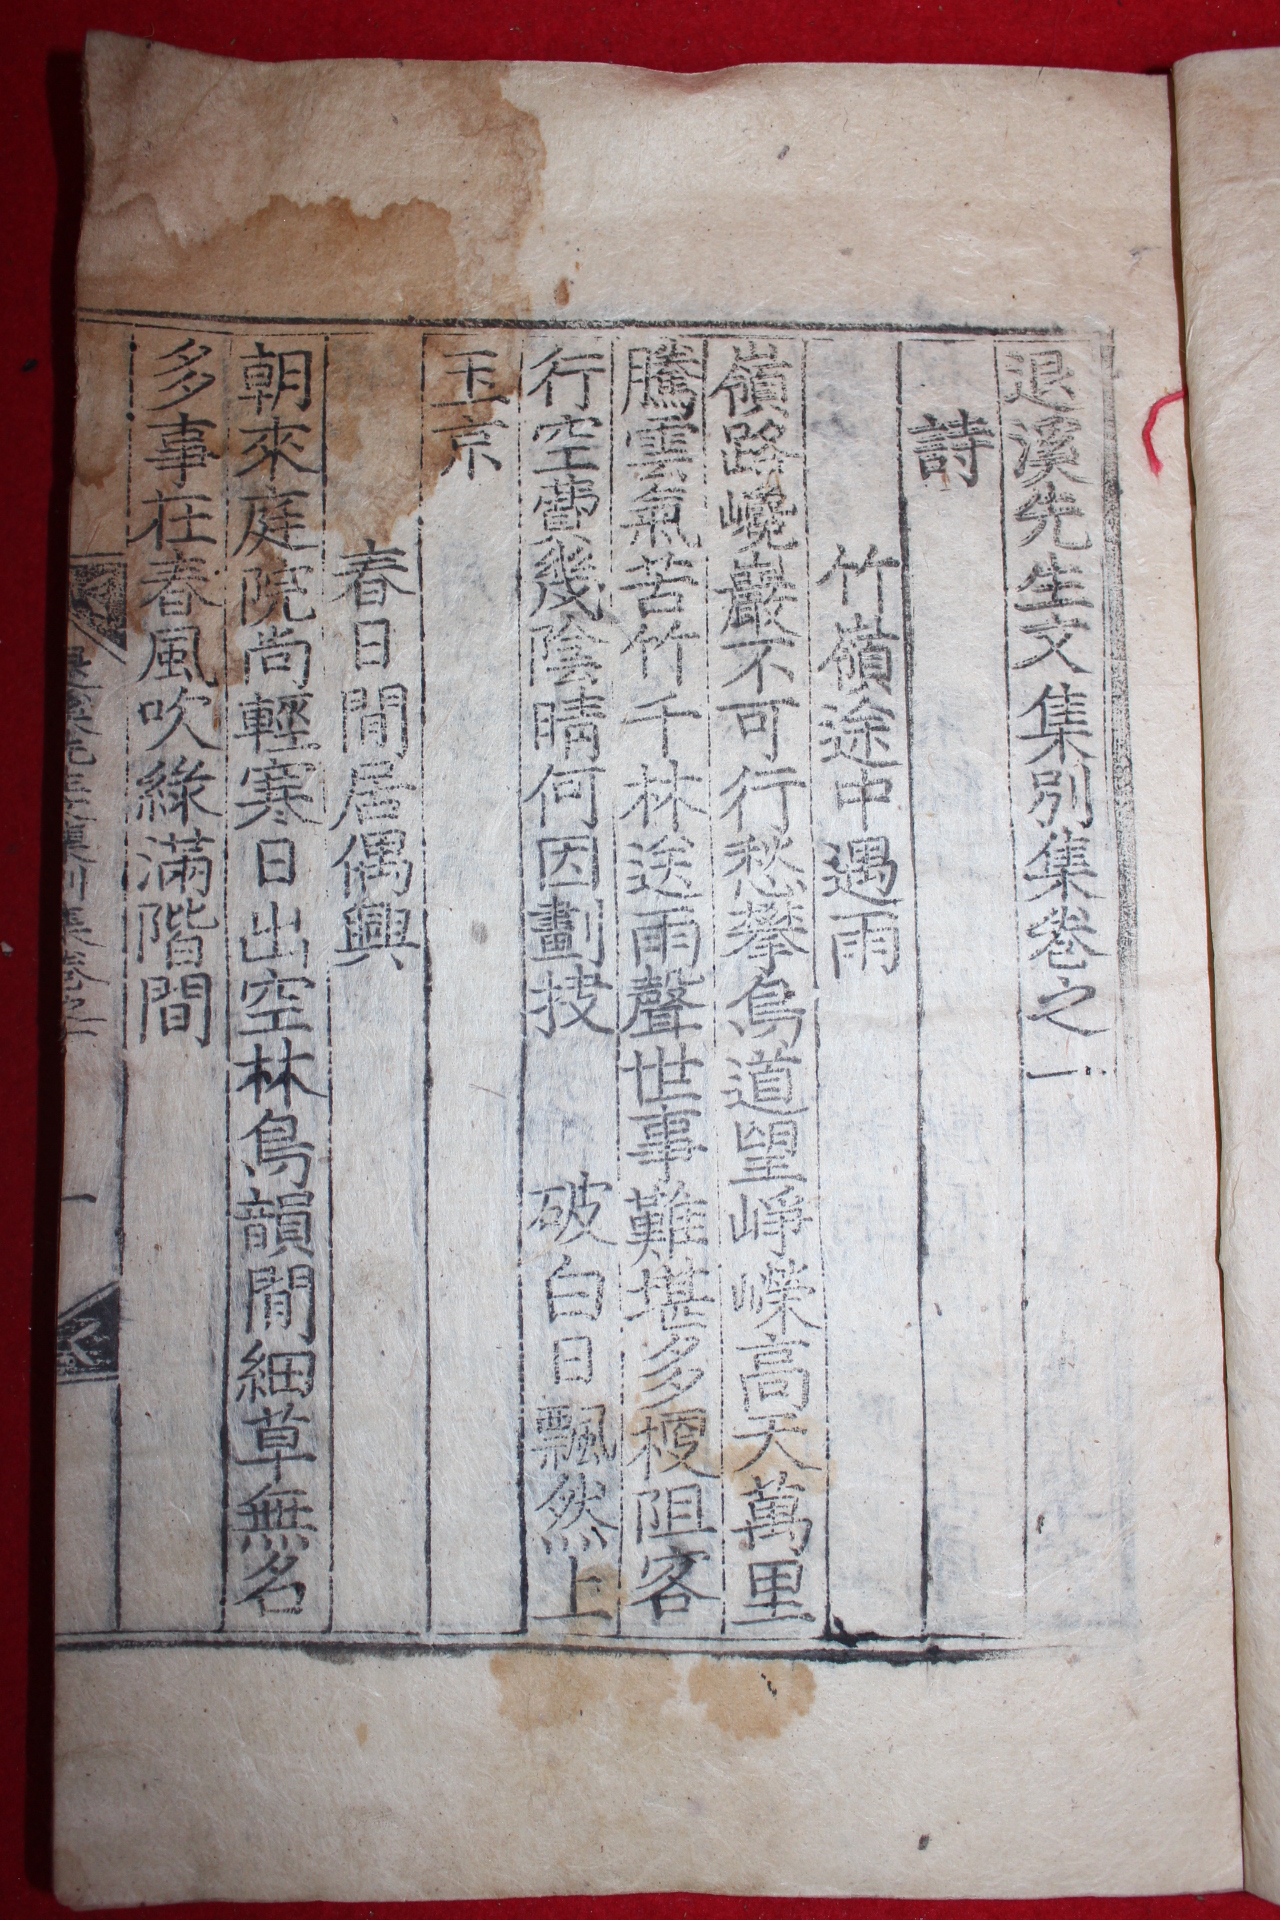 退溪先生文集別集卷之一
詩
竹嶺途中遇雨
嶺路巉巖不可行愁攀鳥道望崢嶸高天萬里
騰雲氣苦竹千林送雨聲世事難堪多梗阻客
行空費幾陰晴何因劃 破白日飄然上
玉京
春日閒居偶興
朝來庭院尚輕寒日出空林鳥韻閒細草無名
多事在春風吹綠滿階間
退溪先生文集別集卷之一
一